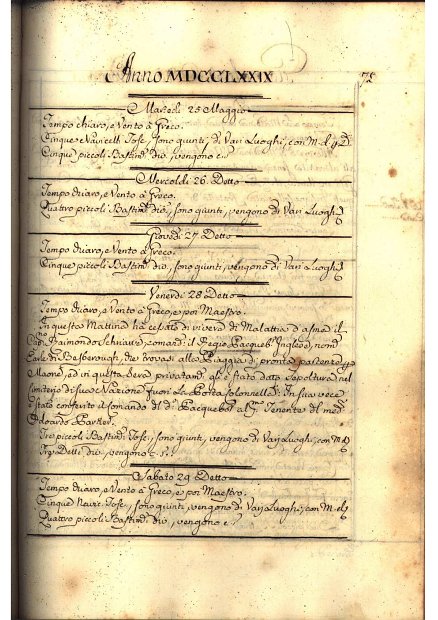 Anno MDCCLXXIX
Martedi 25 Maggio
Tempo chiaro, e Vento à Greco.
Cinque Navicelli Tos:, sono giunti, di Vari Luoghi, con M.
Cinque piccoli Bastim: vengono
Mercoldi 26 Detto
Tempo chiaro, e Vento à Greco.
Quattro piccoli Bastim: sono giunti, vengono di Vari Luoghi
Giovedi 27 Detto
Tempo chiaro, e Vento à Greco.
Cinque piccoli Bastim: sono giunti, vengono di Vari Luoghi
Venerdi 28 Detto
Tempo chiaro, e Vento à Greco, e poi Maestro.
In questa Mattina hà cessato di vivere di Malattia d'asma il
Raimondo comand: il Regio Pacqueb: Inglese, nom:
Carle di Besborough, che trovasi alla Piaggia di pronta partenza
Maone, ed in questa Sera privatam: gli è stata data Sepoltura nel
Cimiterio di sua Nazione fuori La Porta Colonnella. In sua vece
è stato conferito il comando del Pacquebot al Tenente del med:
Edoardo
Tre piccoli Bastim: Tos:, sono giunti, vengono di Vari Luoghi, con M.
Tre Detti vengono
Sabato 29 Detto
Tempo chiaro, e Vento à Greco, e poi Maestro.
Cinque Navic: Tos:, sono giunti, vengono di Vari Luoghi, con M.
Quattro piccoli Bastim: vengono